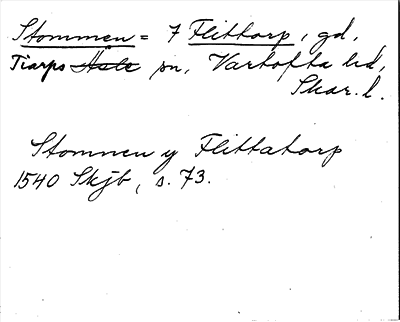 Stommen = 7 Flittorp, gd,
Tiarps Håle sn, Vartofta hd,
Skar. l.
Stomnen y Flittatorp
1540 Skjb, s. 73.